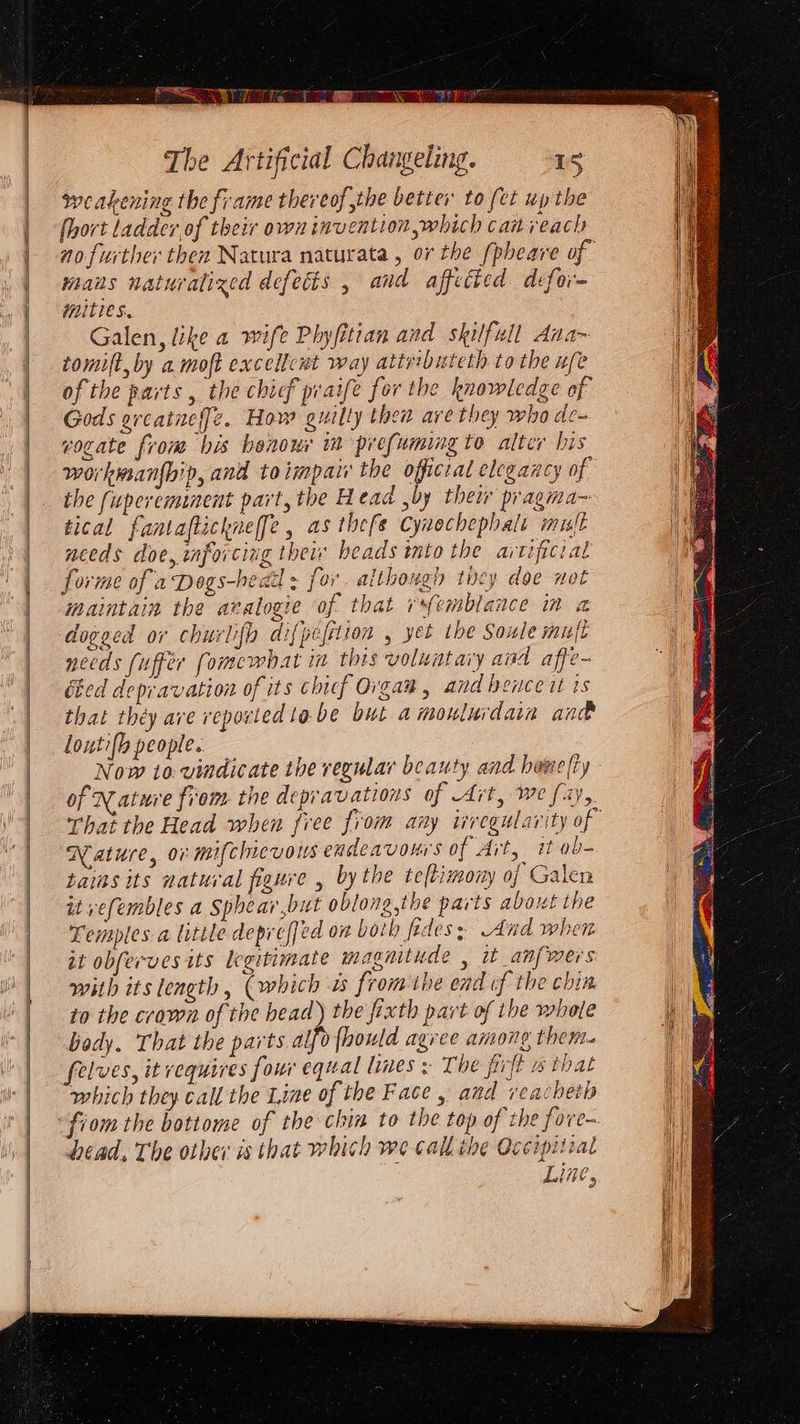 The Artificial Changeling. 15
weakening the frame thereof, the better to ſet up the
ſhort ladder of their own invention, which can reach
no further then Natura naturata, or the ſpheare of
mans naturalized defects, and affected defor-
mities.
Galen, like a wiſe Phyſitian and skilfull Ana-
tomiſt, by a moſt excellent way attributeth to the uſe
of the parts, the chief praiſe for the knowledge of
Gods greatneſſe. How guilty then are they who de-
rogate from his honour in preſuming to alter his
workmanſhip, and to impair the official elegancy of
the ſupereminent part, the Head, by their pragma-
tical fantaſtickneſſe, as theſe Cynochephali muſt
needs doe, inforcing their heads into the artificial
forme of a Dogs-head: for although they doe not
maintain the analogie of that reſemblance in a
dogged or churliſh diſpoſition, yet the Soule muſt
needs ſuffer ſomewhat in this voluntary and affe-
cted depravation of its chief Organ, and hence it is
that they are reported to be but a moulurdain and
loutiſh people.
Now to vindicate the regular beauty and honeſty
of Nature from the depravations of Art, we ſay,
That the Head when free from any irregularity of
Nature, or miſchievous endeavours of Art, it ob-
tains its natural figure, by the teſtimony of Galen
it reſembles a Sphear, but oblong, the parts about the
Temples a little depreſſed on both ſides: And when
it obſerves its legitimate magnitude, it anſwers
with its length, (which is from the end of the chin
to the crown of the head) the ſixth part of the whole
body. That the parts alſo ſhould agree among them-
ſelves, it requires four equal lines: The firſt is that
which they call the Line of the Face, and reacheth
from the bottome of the chin to the top of the fore-
head, The other is that which we call the Occipitial
Line,